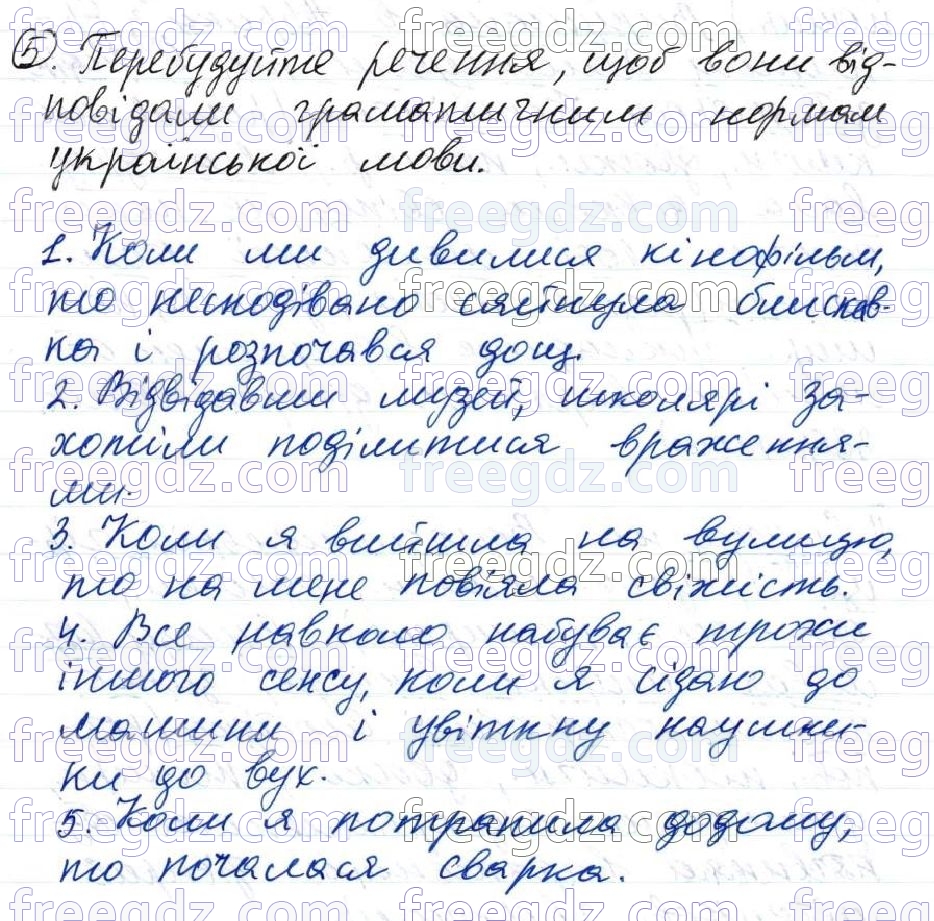 5. Перебудуйте речення, щоб вони від-
повідали граматичним нормам
української мови.
1. Коли ми дивилися кінофільм,
то несподівано сяйнула блискав-
ка і розпочався дощ.
2. Відвідавши музей, школярі за-
хотіли поділитися враження-
ми.
3. Коли я вийшла на вулицю,
то на мене повіяла свіжість.
4. Все навколо набуває трохи
іншого сенсу, коли я сідаю до
машини і увіткну наушни-
ки до вух.
5. Коли я потрапила додому,
то почалася сварка.
freegdz.com